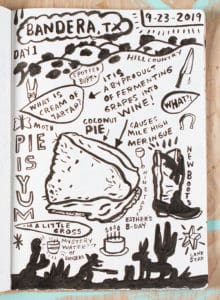 BANDERA, TX
9-23-2019
DAY 1
HILL COUNTRY
SPOTTED DEER
WHAT IS CREAM OF TARTAR?
IT IS A BYPRODUCT OF FERMENTING GRAPES INTO WINE!
WHAT!
MOTH
COCONUT PIE,
CAUSE: MILE HIGH MERINGUE
PIE IS YUM
NEW BOOTS
I'M A LITTLE GROSS
MYSTERY WATER
ESTHER'S B-DAY
LONE STAR